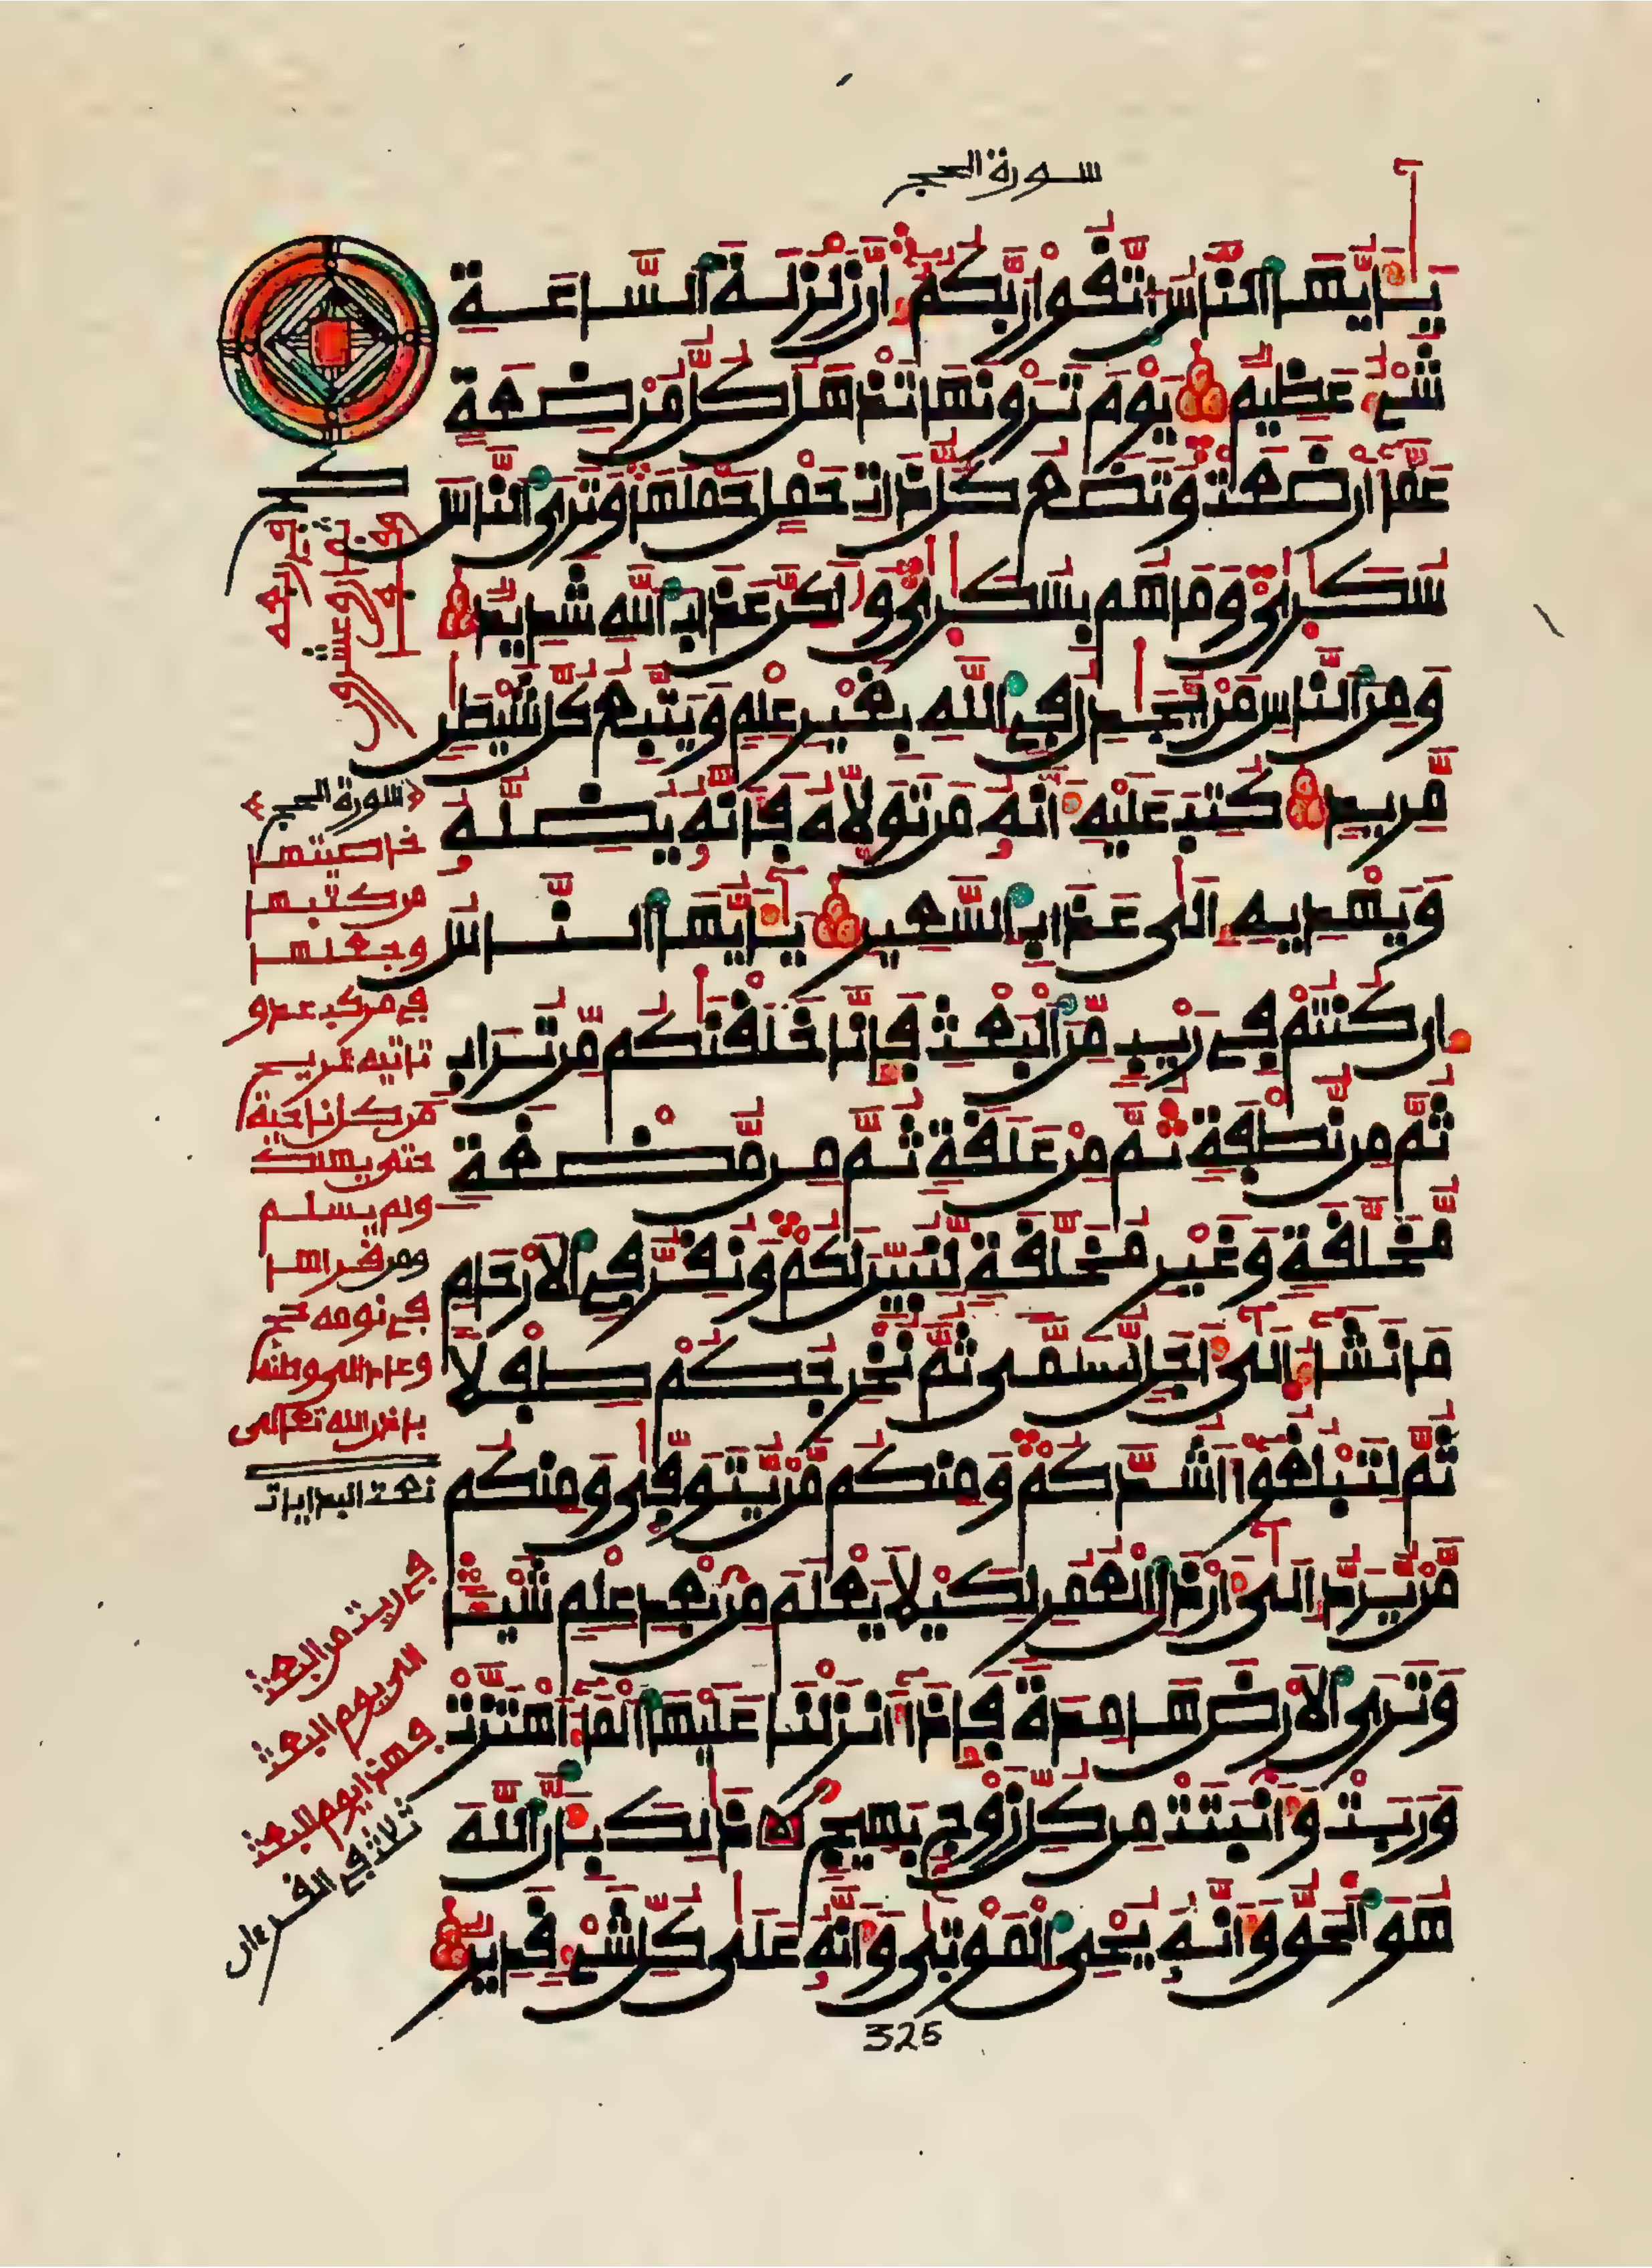 سورة الحج
يَـٰأَيُّهَا ٱلنَّاسُ ٱتَّقُوا رَبَّكُمُۥٓ إِنَّ زَلْزَلَةَ ٱلسَّاعَةِ
شَيْءٌ عَظِيمٌ يَوْمَ تَرَوْنَهَا تَذْهَلُ كُلُّ مُرْضِعَةٍ
عَمَّا أَرْضَعَتْ وَتَضَعُ كُلُّ ذَاتِ حَمْلٍ حَمْلَهَا وَتَرَى ٱلنَّاسَ
سُكَـٰرَىٰ وَمَا هُم بِسُكَـٰرَىٰ وَلَـٰكِنَّ عَذَابَ ٱللَّهِ شَدِيدٌ
وَمِنَ ٱلنَّاسِ مَنْ يُّجَـٰدِلُ فِي ٱللَّهِ بِغَيْرِ عِلْمٍ وَيَتَّبِعُ كُلَّ شَيْطَـٰنٍ
مَّرِيدٍ كُتِبَ عَلَيْهِ أَنَّهُۥ مَن تَوَلَّاهُ فَإِنَّهُۥ يُضِلُّهُۥ
وَيَهْدِيهِ إِلَىٰ عَذَابِ ٱلسَّعِيرِ يَـٰأَيُّهَا ٱلنَّاسُ
إِن كُنتُمْ فِي رَيْبٍ مِّنَ ٱلْبَعْثِ فَإِنَّا خَلَقْنَـٰكُم مِّن تُرَابٍ
ثُمَّ مِن نُّطْفَةٍ ثُمَّ مِنْ عَلَقَةٍ ثُمَّ مِن مُّضْغَةٍ
مُّخَلَّقَةٍ وَغَيْرِ مُخَلَّقَةٍ لِّنُبَيِّنَ لَكُمْ وَنُقِرُّ فِي ٱلْأَرْحَامِ
مَا نَشَآءُ إِلَىٰ أَجَلٍ مُّسَمًّى ثُمَّ نُخْرِجُكُمْ طِفْلًا
ثُمَّ لِتَبْلُغُوٓا أَشُدَّكُمْ وَمِنكُم مَّنْ يُّتَوَفَّىٰ وَمِنكُم
مَّنْ يُّرَدُّ إِلَىٰٓ أَرْذَلِ ٱلْعُمُرِ لِكَيْلَا يَعْلَمَ مِنۢ بَعْدِ عِلْمٍ شَيْـًٔا
وَتَرَى ٱلْأَرْضَ هَامِدَةً فَإِذَآ أَنزَلْنَا عَلَيْهَا ٱلْمَآءَ ٱهْتَزَّتْ
وَرَبَتْ وَأَنۢبَتَتْ مِن كُلِّ زَوْجٍ بَهِيجٍ ذَٰلِكَ بِأَنَّ ٱللَّهَ
هُوَ ٱلْحَقُّ وَأَنَّهُۥ يُحْيِ ٱلْمَوْتَىٰ وَأَنَّهُۥ عَلَىٰ كُلِّ شَيْءٍ قَدِيرٌ
325
سورة الحج
خاصيتها
من كتبها
وجعلها
في مركب عدو
تاتيه الريح
من كل ناحية
حتى يهلك
ولم يسلم
ومن قراها
في نومه حج
وعاد الى وطنه
باذن الله تعالى
نعت البدايات
في ريب من البعث
الى يوم البعث
فهذا يوم البعث
ثلاث في القرءان